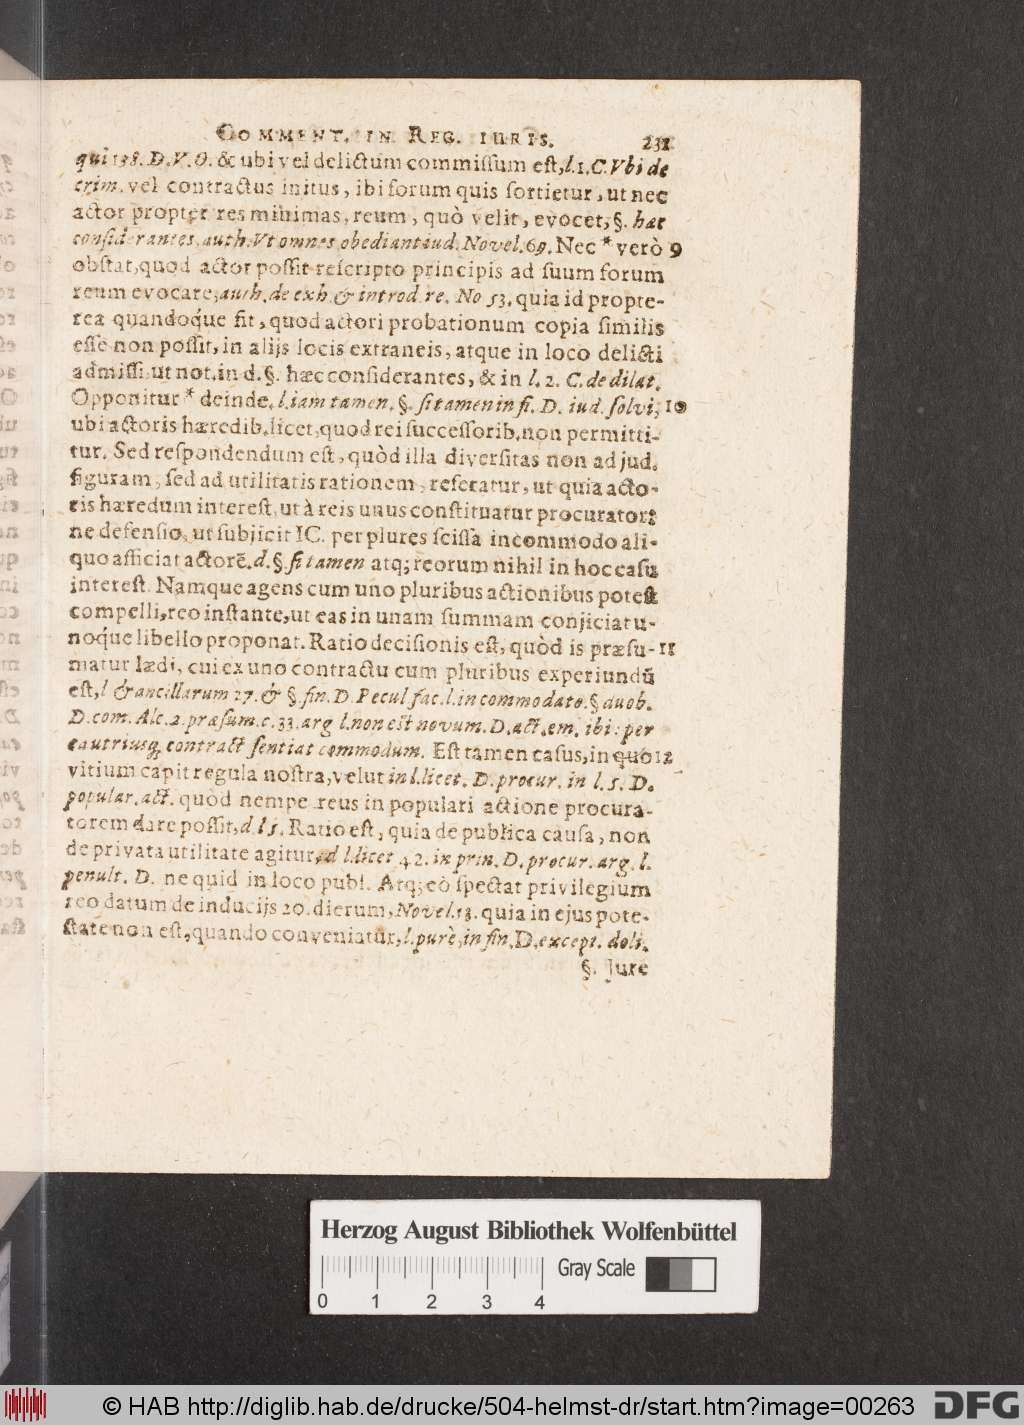 COMMENT. IN REG. IURIS. 231
qui 198. D. V. O. & ubi vel delictum commissum est, l. 1. C. Vbi de
crim. vel contractus initus, ibi forum quis sortietur, ut nec
actor propter res minimas, reum, quò velit, evocet, §. hæc
considerantes. auth. Vt omnes obediant aud. Novel. 69. Nec * verò 9
obstat, quod actor possit rescripto principis ad suum forum
reum evocare, auth. de exh. & introd. re. No 53. quia id propte-
rea quandoque fit, quod actori probationum copia similis
esse non possit, in alijs locis extraneis, atque in loco delicti
admissi. ut not. in d. §. hæc considerantes, & in l. 2. C. de dilat.
Opponitur * deinde. l. iam tamen. §. si tamen in fi. D. iud. solvi, 10
ubi actoris hæredib. licet, quod rei successorib. non permitti-
tur. Sed respondendum est, quòd illa diversitas non ad jud.
figuram, sed ad utilitatis rationem, referatur, ut quia acto-
ris hæredum interest, ut à reis unus constituatur procurator:
ne defensio, ut subjicit IC. per plures scissa incommodo ali-
quo afficiat actorē. d. §. si tamen atq; reorum nihil in hoc casu
interest. Namque agens cum uno pluribus actionibus potest
compelli, reo instante, ut eas in unam summam conjiciat u-
nóque libello proponat. Ratio decisionis est, quòd is præsu- 11
matur lædi, cui ex uno contractu cum pluribus experiundū
est, l & ancillarum 27. & §. fin. D. Pecul fac. l. in commodato. § duob.
D. com. Alc. 2. præsum. c. 33. arg l. non est novum. D. act. em. ibi: per
ea utriusq; contract sentiat commodum. Est tamen casus, in quo 12
vitium capit regula nostra, velut in l. licet. D. procur. in l. 5. D.
popular. act. quòd nempe reus in populari actione procura-
torem dare possit, d. l 5. Ratio est, quia de publica causa, non
de privata utilitate agitur, d l. licet 42. in prin. D. procur. arg. l.
penult. D. ne quid in loco publ. Atq; eò spectat privilegium
reo datum de inducijs 20. dierum, Novel. 53. quia in ejus pote-
state non est, quando conveniatur, l. purè, in fin. D. except. doli.
§. Jure
Herzog August Bibliothek Wolfenbüttel
Gray Scale
0 1 2 3 4
© HAB http://diglib.hab.de/drucke/504-helmst-dr/start.htm?image=00263
DFG